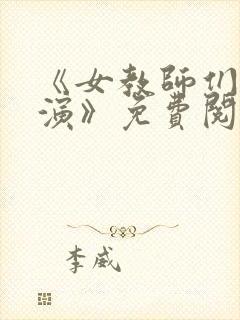 《女教師们
演》免費閱
李威